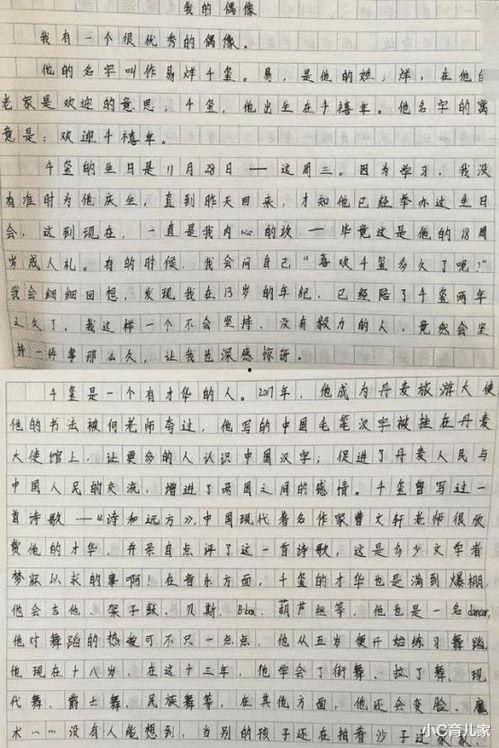 我的偶像
我有一个很优秀的偶像。
他的名字叫作易烊千玺。易，是他的姓；烊，在他们
老家是欢迎的意思；千玺，他出生在千禧年。他名字的寓
意是：欢迎千禧年。
千玺的生日是11月28日——这周三。因为学习，我没
有准时为他庆生，直到昨天回来，才知他已经举办过生日
会，这到现在，一直是我内心的坎——毕竟这是他的18周
岁成人礼。有的时候，我会问自己“喜欢千玺多久了呢？”
我会细细回想，发现我在13岁的年纪，已经陪了千玺两年
之久了，我这样一个不会坚持、没有毅力的人，竟然会坚
持一件事那么久，让我也深感惊讶。
千玺是一个有才华的人。2017年，他成为丹麦旅游大使
他的书法被何老师夸过，他写的中国毛笔汉字被挂在丹麦
大使馆上，让更多的人认识中国汉字；促进了丹麦人民与
中国人民的交流，增进了两国之间的感情。千玺曾写过一
首诗歌——《诗和远方》，中国现代著名作家曹文轩老师很欣
赏他的才华，并亲自点评了这一首诗歌，这是多少文学者
梦寐以求的事啊！在音乐方面，千玺的才华也是满到爆棚，
他会吉他、架子鼓、贝斯、B-box、葫芦丝等，他也是一名dancer,
他对舞蹈的热爱可不只一点点，他从五岁便开始练习舞蹈，
他现在十八岁，在这十三年，他学会了街舞、拉丁舞、现
代舞、爵士舞、民族舞等，在其他方面，他还会变脸、魔
术……没有人能想到，当别的孩子还在拍着沙子过家家
小C育儿家